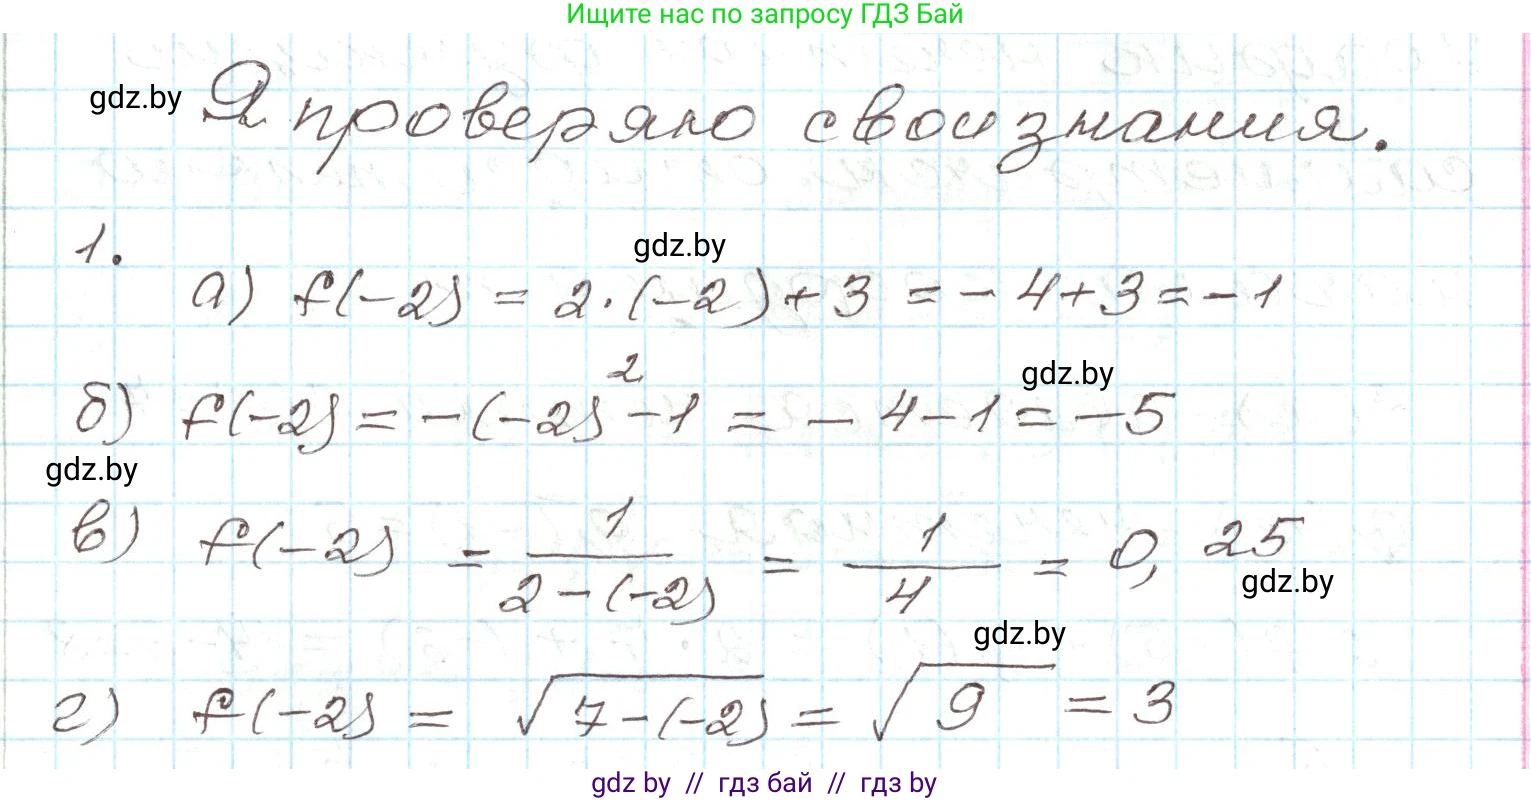 Ищите нас по запросу ГДЗ Бай
gdz.by
Я проверяю свои знания.
1.
gdz.by
а) f(-2) = 2·(-2)+3 = -4+3 = -1
б) f(-2) = -(-2)²-1 = -4-1 = -5
gdz.by
gdz.by
в) f(-2) = 1/(2-(-2)) = 1/4 = 0,25
gdz.by
gdz.by
г) f(-2) = √(7-(-2)) = √9 = 3
gdz by // гдз бай // гдз by